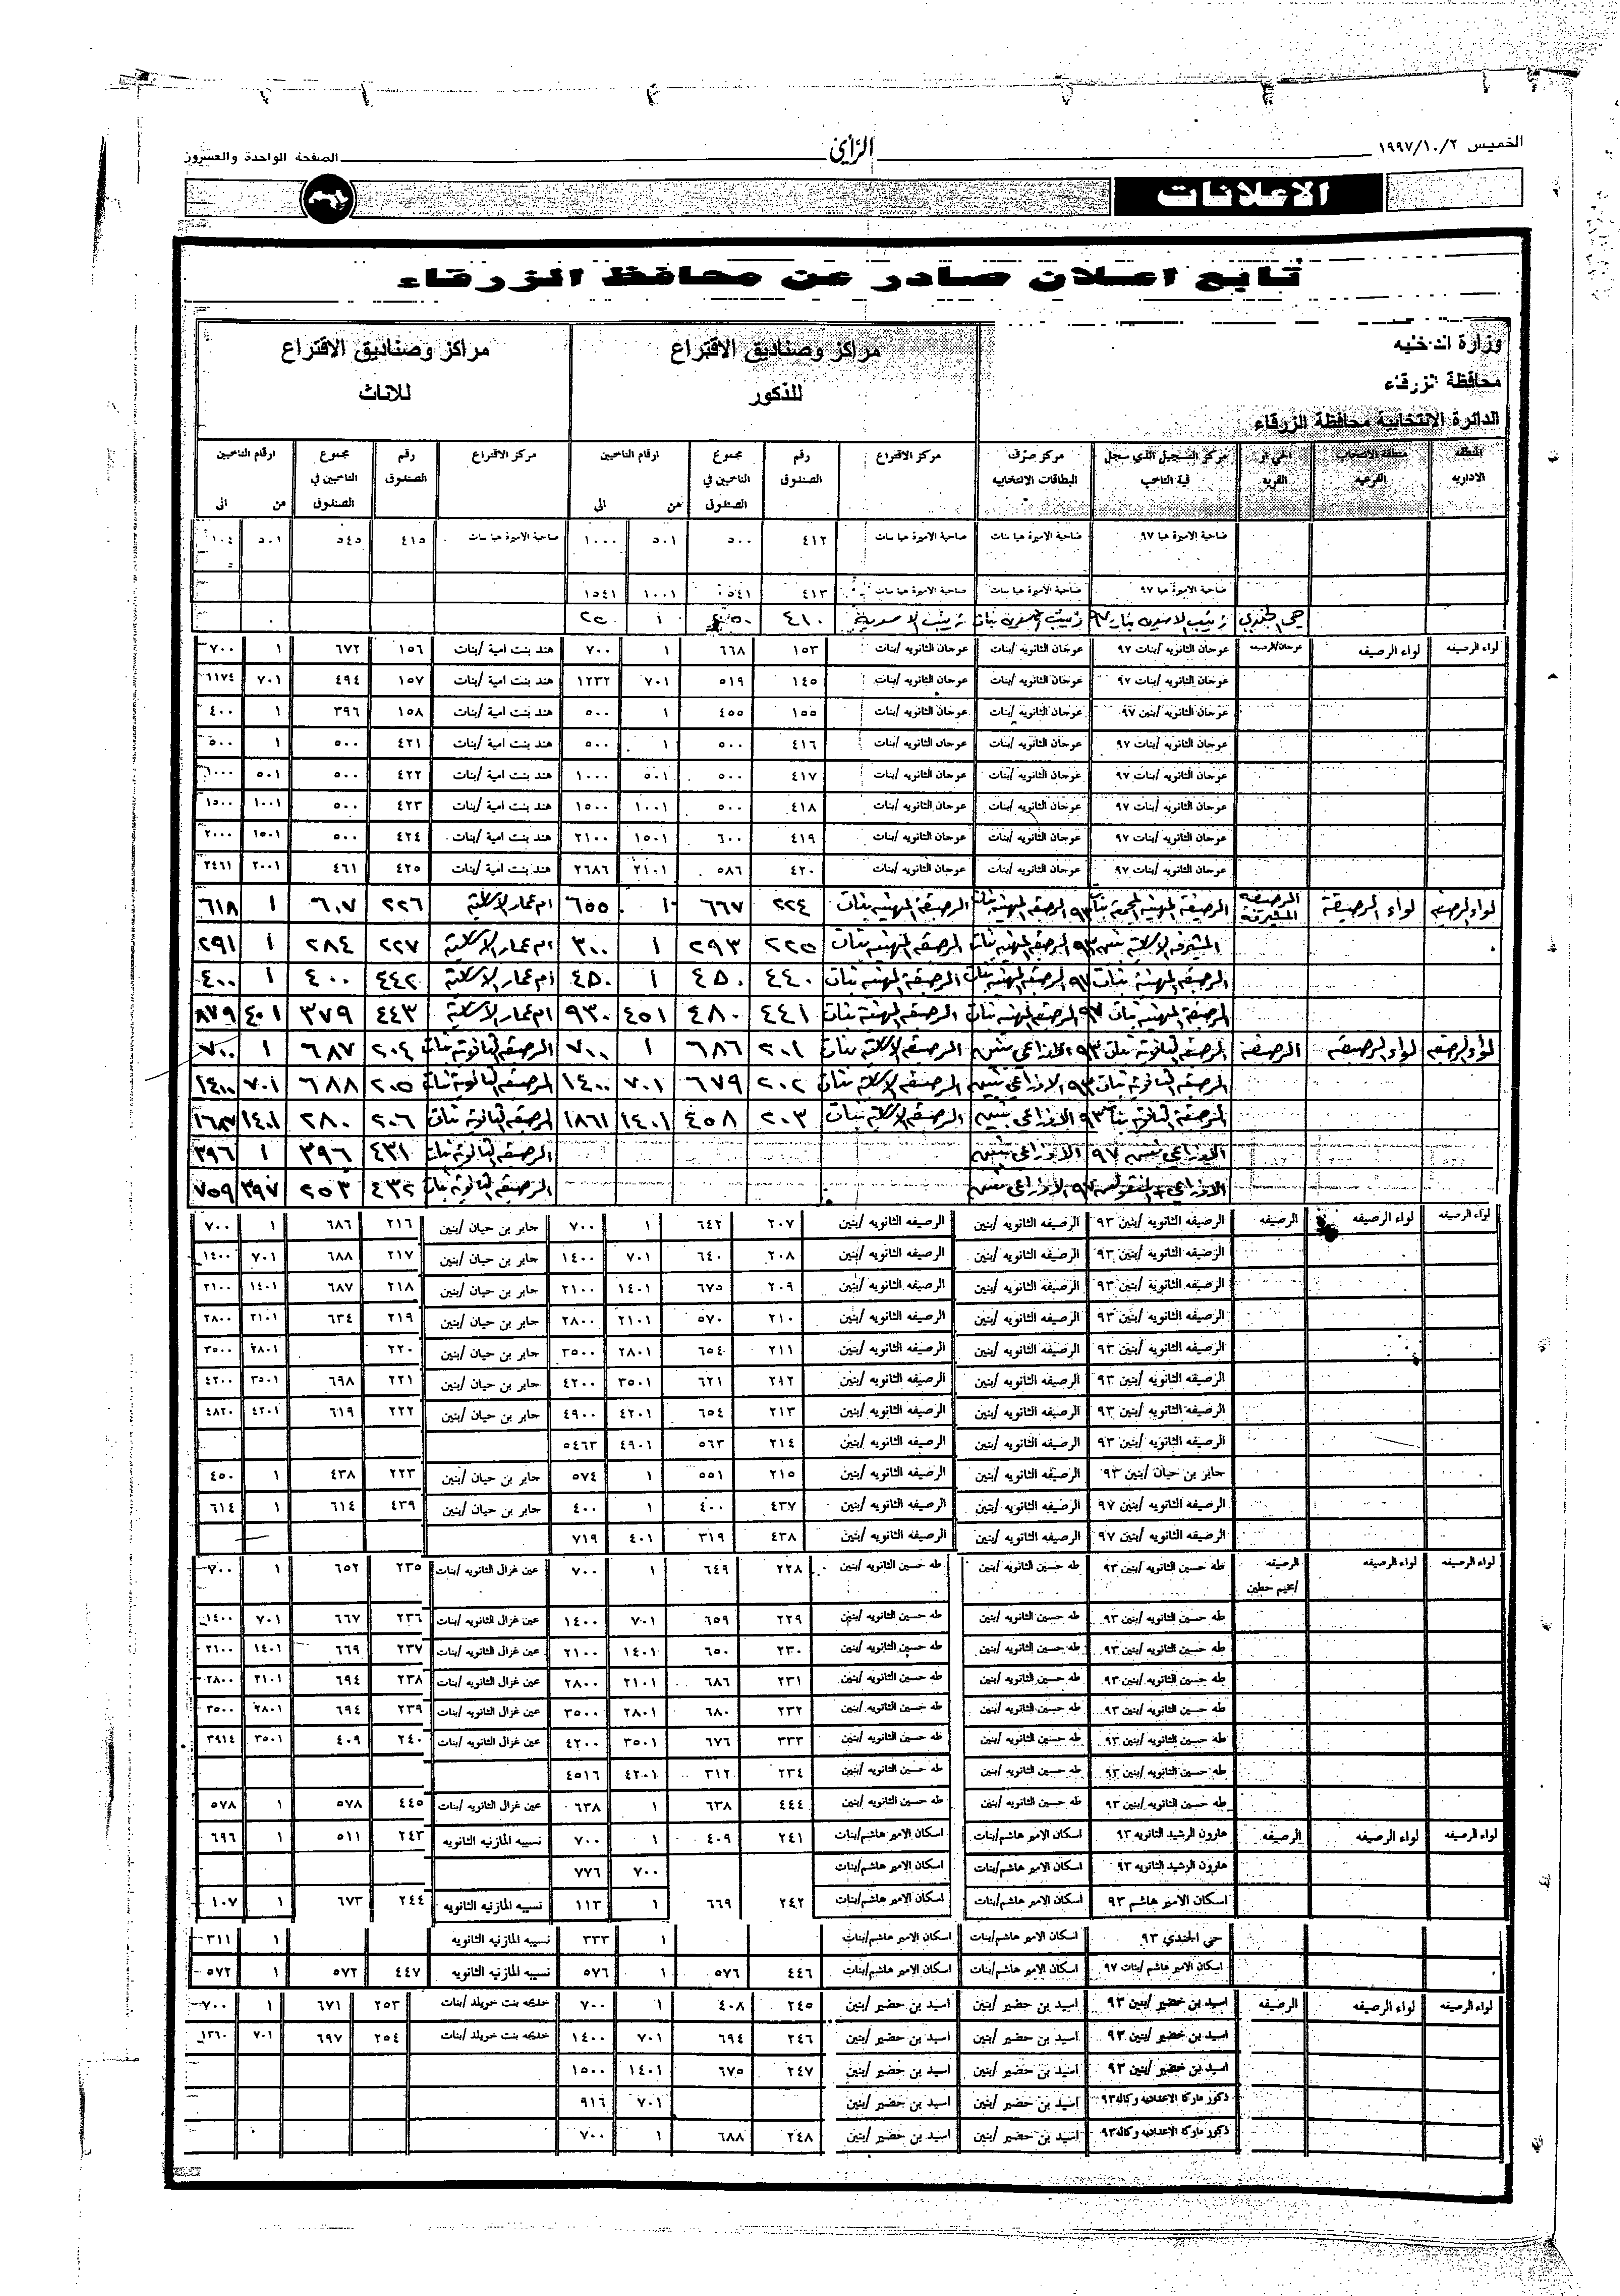 الخميس ١٩٩٧/١٠/٢
الرأي
الصفحة الواحدة والعشرون
الاعلانات
تابع اعلان صادر عن محافظ الزرقاء
وزارة الداخليه
محافظة الزرقاء
الدائرة الانتخابية محافظة الزرقاء
مراكز وصناديق الاقتراع للذكور
مراكز وصناديق الاقتراع للاناث
المنطقه الاداريه منطقة الانتخاب الفرعيه الحي او القريه مركز التسجيل الذي سجل فيه الناخب مركز صرف البطاقات الانتخابيه مركز الاقتراع رقم الصندوق مجموع الناخبين في الصندوق ارقام الناخبين من الى مركز الاقتراع رقم الصندوق مجموع الناخبين في الصندوق ارقام الناخبين من الى
ضاحية الاميرة هيا ٩٧ ضاحية الاميرة هيا بنات ضاحية الاميرة هيا بنات ٤١٢ ٥٠٠ ٥٠١ ١٠٠٠ ضاحية الاميرة هيا بنات ٤١٥ ٥٤٥ ٥٠١
ضاحية الاميرة هيا ٩٧ ضاحية الاميرة هيا بنات ضاحية الاميرة هيا بنات ٤١٣ ٥٤١ ١٠٠١ ١٥٤١
٤١٠ ١
لواء الرصيفه لواء الرصيفه عوجان/الرصيفه عوجان الثانويه /بنات ٩٧ عوجان الثانويه /بنات عوجان الثانويه /بنات ١٥٣ ٦٦٨ ١ ٧٠٠ هند بنت امية /بنات ١٥٦ ٦٧٢ ١ ٧٠٠
عوجان الثانويه /بنات ٩٧ عوجان الثانويه /بنات عوجان الثانويه /بنات ١٤٥ ٥١٩ ٧٠١ ١٢٣٢ هند بنت امية /بنات ١٥٧ ٤٩٤ ٧٠١ ١١٧٤
عوجان الثانويه /بنين ٩٧ عوجان الثانويه /بنات عوجان الثانويه /بنات ١٥٥ ٤٥٥ ١ ٥٠٠ هند بنت امية /بنات ١٥٨ ٣٩٦ ١ ٤٠٠
عوجان الثانويه /بنات ٩٧ عوجان الثانويه /بنات عوجان الثانويه /بنات ٤١٦ ٥٠٠ ١ ٥٠٠ هند بنت امية /بنات ٤٢١ ٥٠٠ ١ ٥٠٠
عوجان الثانويه /بنات ٩٧ عوجان الثانويه /بنات عوجان الثانويه /بنات ٤١٧ ٥٠٠ ٥٠١ ١٠٠٠ هند بنت امية /بنات ٤٢٢ ٥٠٠ ٥٠١ ١٠٠٠
عوجان الثانويه /بنات ٩٧ عوجان الثانويه /بنات عوجان الثانويه /بنات ٤١٨ ٥٠٠ ١٠٠١ ١٥٠٠ هند بنت امية /بنات ٤٢٣ ٥٠٠ ١٠٠١ ١٥٠٠
عوجان الثانويه /بنات ٩٧ عوجان الثانويه /بنات عوجان الثانويه /بنات ٤١٩ ٦٠٠ ١٥٠١ ٢١٠٠ هند بنت امية /بنات ٤٢٤ ٥٠٠ ١٥٠١ ٢٠٠٠
عوجان الثانويه /بنات ٩٧ عوجان الثانويه /بنات عوجان الثانويه /بنات ٤٢٠ ٥٨٦ ٢١٠١ ٢٦٨٦ هند بنت امية /بنات ٤٢٥ ٤٦١ ٢٠٠١ ٢٤٦١
لواء الرصيفه لواء الرصيفة الرصيفه المشيرفة الرصيفة المهنيه بنات ٩٣ الرصيفه المهنيه بنات الرصيفة المهنيه بنات ٢٢٤ ٦٦٧ ١ ٦٥٥ ام عمار الاساسية ٢٢٦ ٦٠٧ ١ ٦١٨
المشيرفه الاساسية بنين ٩٣ الرصيفه المهنيه بنات الرصيفه المهنيه بنات ٢٢٥ ٢٩٣ ١ ٣٠٠ ام عمار الاساسية ٢٢٧ ٢٨٤ ١ ٢٩١
الرصيفه المهنيه بنات ٩٧ الرصيفه المهنيه بنات الرصيفة المهنيه بنات ٤٤٠ ٤٥٠ ١ ٤٥٠ ام عمار الاساسية ٤٤٢ ٤٠٠ ١ ٤٠٠
الرصيفة المهنيه بنات ٩٧ الرصيفه المهنيه بنات الرصيفه المهنيه بنات ٤٤١ ٤٨٠ ٤٥١ ٩٣٠ ام عمار الاساسية ٤٤٣ ٣٧٩ ٤٠١ ٨٧٩
لواء الرصيفه لواء الرصيفه الرصيفة الرصيفه الثانوية بنات ٩٣ الاوزاعي بنين الرصيفه الاساسية بنات ٢٠١ ٦٨٦ ١ ٧٠٠ الرصيفه الثانوية بنات ٢٠٤ ٦٨٧ ١ ٧٠٠
الرصيفه الثانوية بنات ٩٣ الاوزاعي بنين الرصيفه الاساسية بنات ٢٠٢ ٦٧٩ ٧٠١ ١٤٠٠ الرصيفه الثانوية بنات ٢٠٥ ٦٨٨ ٧٠١ ١٤٠٠
الرصيفة الثانوية بنات ٩٣ الاوزاعي بنين الرصيفه الاساسية بنات ٢٠٣ ٤٥٨ ١٤٠١ ١٨٦١ الرصيفه الثانوية بنات ٢٠٦ ٢٨٠ ١٤٠١
الاوزاعي بنين ٩٧ الاوزاعي بنين الرصيفه الثانوية بنات ٤٣١ ٣٩٦ ١ ٣٩٦
الاوزاعي ٩٧ الاوزاعي بنين الرصيفه الثانوية بنات ٤٣٢ ٣٩٧ ٧٥٩
لواء الرصيفه لواء الرصيفه الرصيفه الرصيفه الثانويه /بنين ٩٣ الرصيفه الثانويه /بنين الرصيفه الثانويه /بنين ٢٠٧ ٦٤٢ ١ ٧٠٠ جابر بن حيان /بنين ٢١٦ ٦٨٦ ١ ٧٠٠
الرصيفه الثانويه /بنين ٩٣ الرصيفه الثانويه /بنين الرصيفه الثانويه /بنين ٢٠٨ ٦٤٠ ٧٠١ ١٤٠٠ جابر بن حيان /بنين ٢١٧ ٦٨٨ ٧٠١ ١٤٠٠
الرصيفه الثانويه /بنين ٩٣ الرصيفه الثانويه /بنين الرصيفه الثانويه /بنين ٢٠٩ ٦٧٥ ١٤٠١ ٢١٠٠ جابر بن حيان /بنين ٢١٨ ٦٨٧ ١٤٠١ ٢١٠٠
الرصيفه الثانويه /بنين ٩٣ الرصيفه الثانويه /بنين الرصيفه الثانويه /بنين ٢١٠ ٥٧٠ ٢١٠١ ٢٨٠٠ جابر بن حيان /بنين ٢١٩ ٦٣٤ ٢١٠١ ٢٨٠٠
الرصيفه الثانويه /بنين ٩٣ الرصيفه الثانويه /بنين الرصيفه الثانويه /بنين ٢١١ ٦٥٤ ٢٨٠١ ٣٥٠٠ جابر بن حيان /بنين ٢٢٠ ٢٨٠١ ٣٥٠٠
الرصيفه الثانويه /بنين ٩٣ الرصيفه الثانويه /بنين الرصيفه الثانويه /بنين ٢١٢ ٦٢١ ٣٥٠١ ٤٢٠٠ جابر بن حيان /بنين ٢٢١ ٦٩٨ ٣٥٠١ ٤٢٠٠
الرصيفه الثانويه /بنين ٩٣ الرصيفه الثانويه /بنين الرصيفه الثانويه /بنين ٢١٣ ٦٥٤ ٤٢٠١ ٤٩٠٠ جابر بن حيان /بنين ٢٢٢ ٦١٩ ٤٢٠١ ٤٨٢٠
الرصيفه الثانويه /بنين ٩٣ الرصيفه الثانويه /بنين الرصيفه الثانويه /بنين ٢١٤ ٥٦٣ ٤٩٠١ ٥٤٦٣
جابر بن حيان /بنين ٩٣ الرصيفه الثانويه /بنين الرصيفه الثانويه /بنين ٢١٥ ٥٥١ ١ ٥٧٤ جابر بن حيان /بنين ٢٢٣ ٤٣٨ ١ ٤٥٠
الرصيفه الثانويه /بنين ٩٧ الرصيفه الثانويه /بنين الرصيفه الثانويه /بنين ٤٣٧ ٤٠٠ ١ ٤٠٠ جابر بن حيان /بنين ٤٣٩ ٦١٤ ١ ٦١٤
الرصيفه الثانويه /بنين ٩٧ الرصيفه الثانويه /بنين الرصيفه الثانويه /بنين ٤٣٨ ٣١٩ ٤٠١ ٧١٩
لواء الرصيفه لواء الرصيفه الرصيفه /مخيم حطين طه حسين الثانويه /بنين ٩٣ طه حسين الثانويه /بنين طه حسين الثانويه /بنين ٢٢٨ ٦٤٩ ١ ٧٠٠ عين غزال الثانويه /بنات ٢٣٥ ٦٥٢ ١ ٧٠٠
طه حسين الثانويه /بنين ٩٣ طه حسين الثانويه /بنين طه حسين الثانويه /بنين ٢٢٩ ٦٥٩ ٧٠١ ١٤٠٠ عين غزال الثانويه /بنات ٢٣٦ ٦٦٧ ٧٠١ ١٤٠٠
طه حسين الثانويه /بنين ٩٣ طه حسين الثانويه /بنين طه حسين الثانويه /بنين ٢٣٠ ٦٥٠ ١٤٠١ ٢١٠٠ عين غزال الثانويه /بنات ٢٣٧ ٦٦٩ ١٤٠١ ٢١٠٠
طه حسين الثانويه /بنين ٩٣ طه حسين الثانويه /بنين طه حسين الثانويه /بنين ٢٣١ ٦٨٦ ٢١٠١ ٢٨٠٠ عين غزال الثانويه /بنات ٢٣٨ ٦٩٤ ٢١٠١ ٢٨٠٠
طه حسين الثانويه /بنين ٩٣ طه حسين الثانويه /بنين طه حسين الثانويه /بنين ٢٣٢ ٦٨٠ ٢٨٠١ ٣٥٠٠ عين غزال الثانويه /بنات ٢٣٩ ٦٩٤ ٢٨٠١ ٣٥٠٠
طه حسين الثانويه /بنين ٩٣ طه حسين الثانويه /بنين طه حسين الثانويه /بنين ٣٣٣ ٦٧٦ ٣٥٠١ ٤٢٠٠ عين غزال الثانويه /بنات ٢٤٠ ٤٠٩ ٣٥٠١ ٣٩١٤
طه حسين الثانويه /بنين ٩٣ طه حسين الثانويه /بنين طه حسين الثانويه /بنين ٢٣٤ ٣١٢ ٤٢٠١ ٤٥١٦
طه حسين الثانويه /بنين ٩٣ طه حسين الثانويه /بنين طه حسين الثانويه /بنين ٤٤٤ ٦٣٨ ١ ٦٣٨ عين غزال الثانويه /بنات ٤٤٥ ٥٧٨ ١ ٥٧٨
لواء الرصيفه لواء الرصيفه الرصيفه هارون الرشيد الثانويه ٩٣ اسكان الامير هاشم/بنات اسكان الامير هاشم/بنات ٢٤١ ٤٠٩ ١ ٧٠٠ نسيبه المازنيه الثانويه ٢٤٣ ٥١١ ١ ٦٩٦
هارون الرشيد الثانويه ٩٣ اسكان الامير هاشم/بنات اسكان الامير هاشم/بنات ٧٠٠ ٧٧٦
اسكان الامير هاشم ٩٣ اسكان الامير هاشم/بنات اسكان الامير هاشم/بنات ٢٤٢ ٦٦٩ ١ ١١٣ نسيبه المازنيه الثانويه ٢٤٤ ٦٧٣ ١ ١٠٧
حي الجندي ٩٣ اسكان الامير هاشم/بنات اسكان الامير هاشم/بنات ١ ٣٣٣ نسيبه المازنيه الثانويه ١ ٣١١
اسكان الامير هاشم/ بنات ٩٧ اسكان الامير هاشم/بنات اسكان الامير هاشم/بنات ٤٤٦ ٥٧٦ ١ ٥٧٦ نسيبه المازنيه الثانويه ٤٤٧ ٥٧٢ ١ ٥٧٢
لواء الرصيفه لواء الرصيفه الرصيفه اسيد بن خضير /بنين ٩٣ اسيد بن حضير /بنين اسيد بن حضير /بنين ٢٤٥ ٤٠٨ ١ ٧٠٠ خديجه بنت خويلد /بنات ٢٥٣ ٦٧١ ١ ٧٠٠
اسيد بن خضير /بنين ٩٣ اسيد بن حضير /بنين اسيد بن حضير /بنين ٢٤٦ ٦٩٤ ٧٠١ ١٤٠٠ خديجه بنت خويلد /بنات ٢٥٤ ٦٩٧ ٧٠١ ١٣٦٠
اسيد بن خضير /بنين ٩٣ اسيد بن حضير /بنين اسيد بن حضير /بنين ٢٤٧ ٦٧٥ ١٤٠١ ١٥٠٠
ذكور ماركا الاعداديه وكاله ٩٣ اسيد بن حضير /بنين اسيد بن حضير /بنين ٧٠١ ٩١٦
ذكور ماركا الاعداديه وكاله ٩٣ اسيد بن حضير /بنين اسيد بن حضير /بنين ٢٤٨ ٦٨٨ ١ ٧٠٠